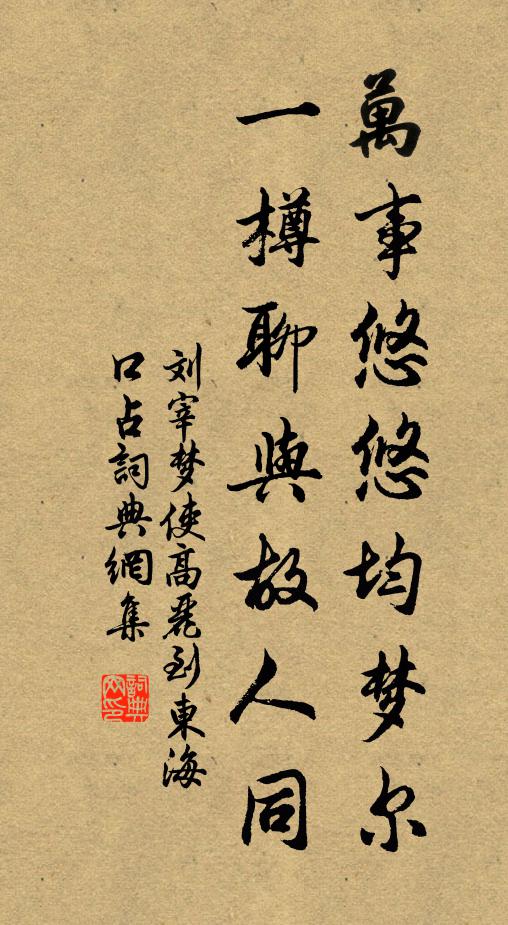 萬事悠悠均梦尔
一樽聊與故人同
刘宰梦使高丽到東海
口占詞典網集
詞典網印